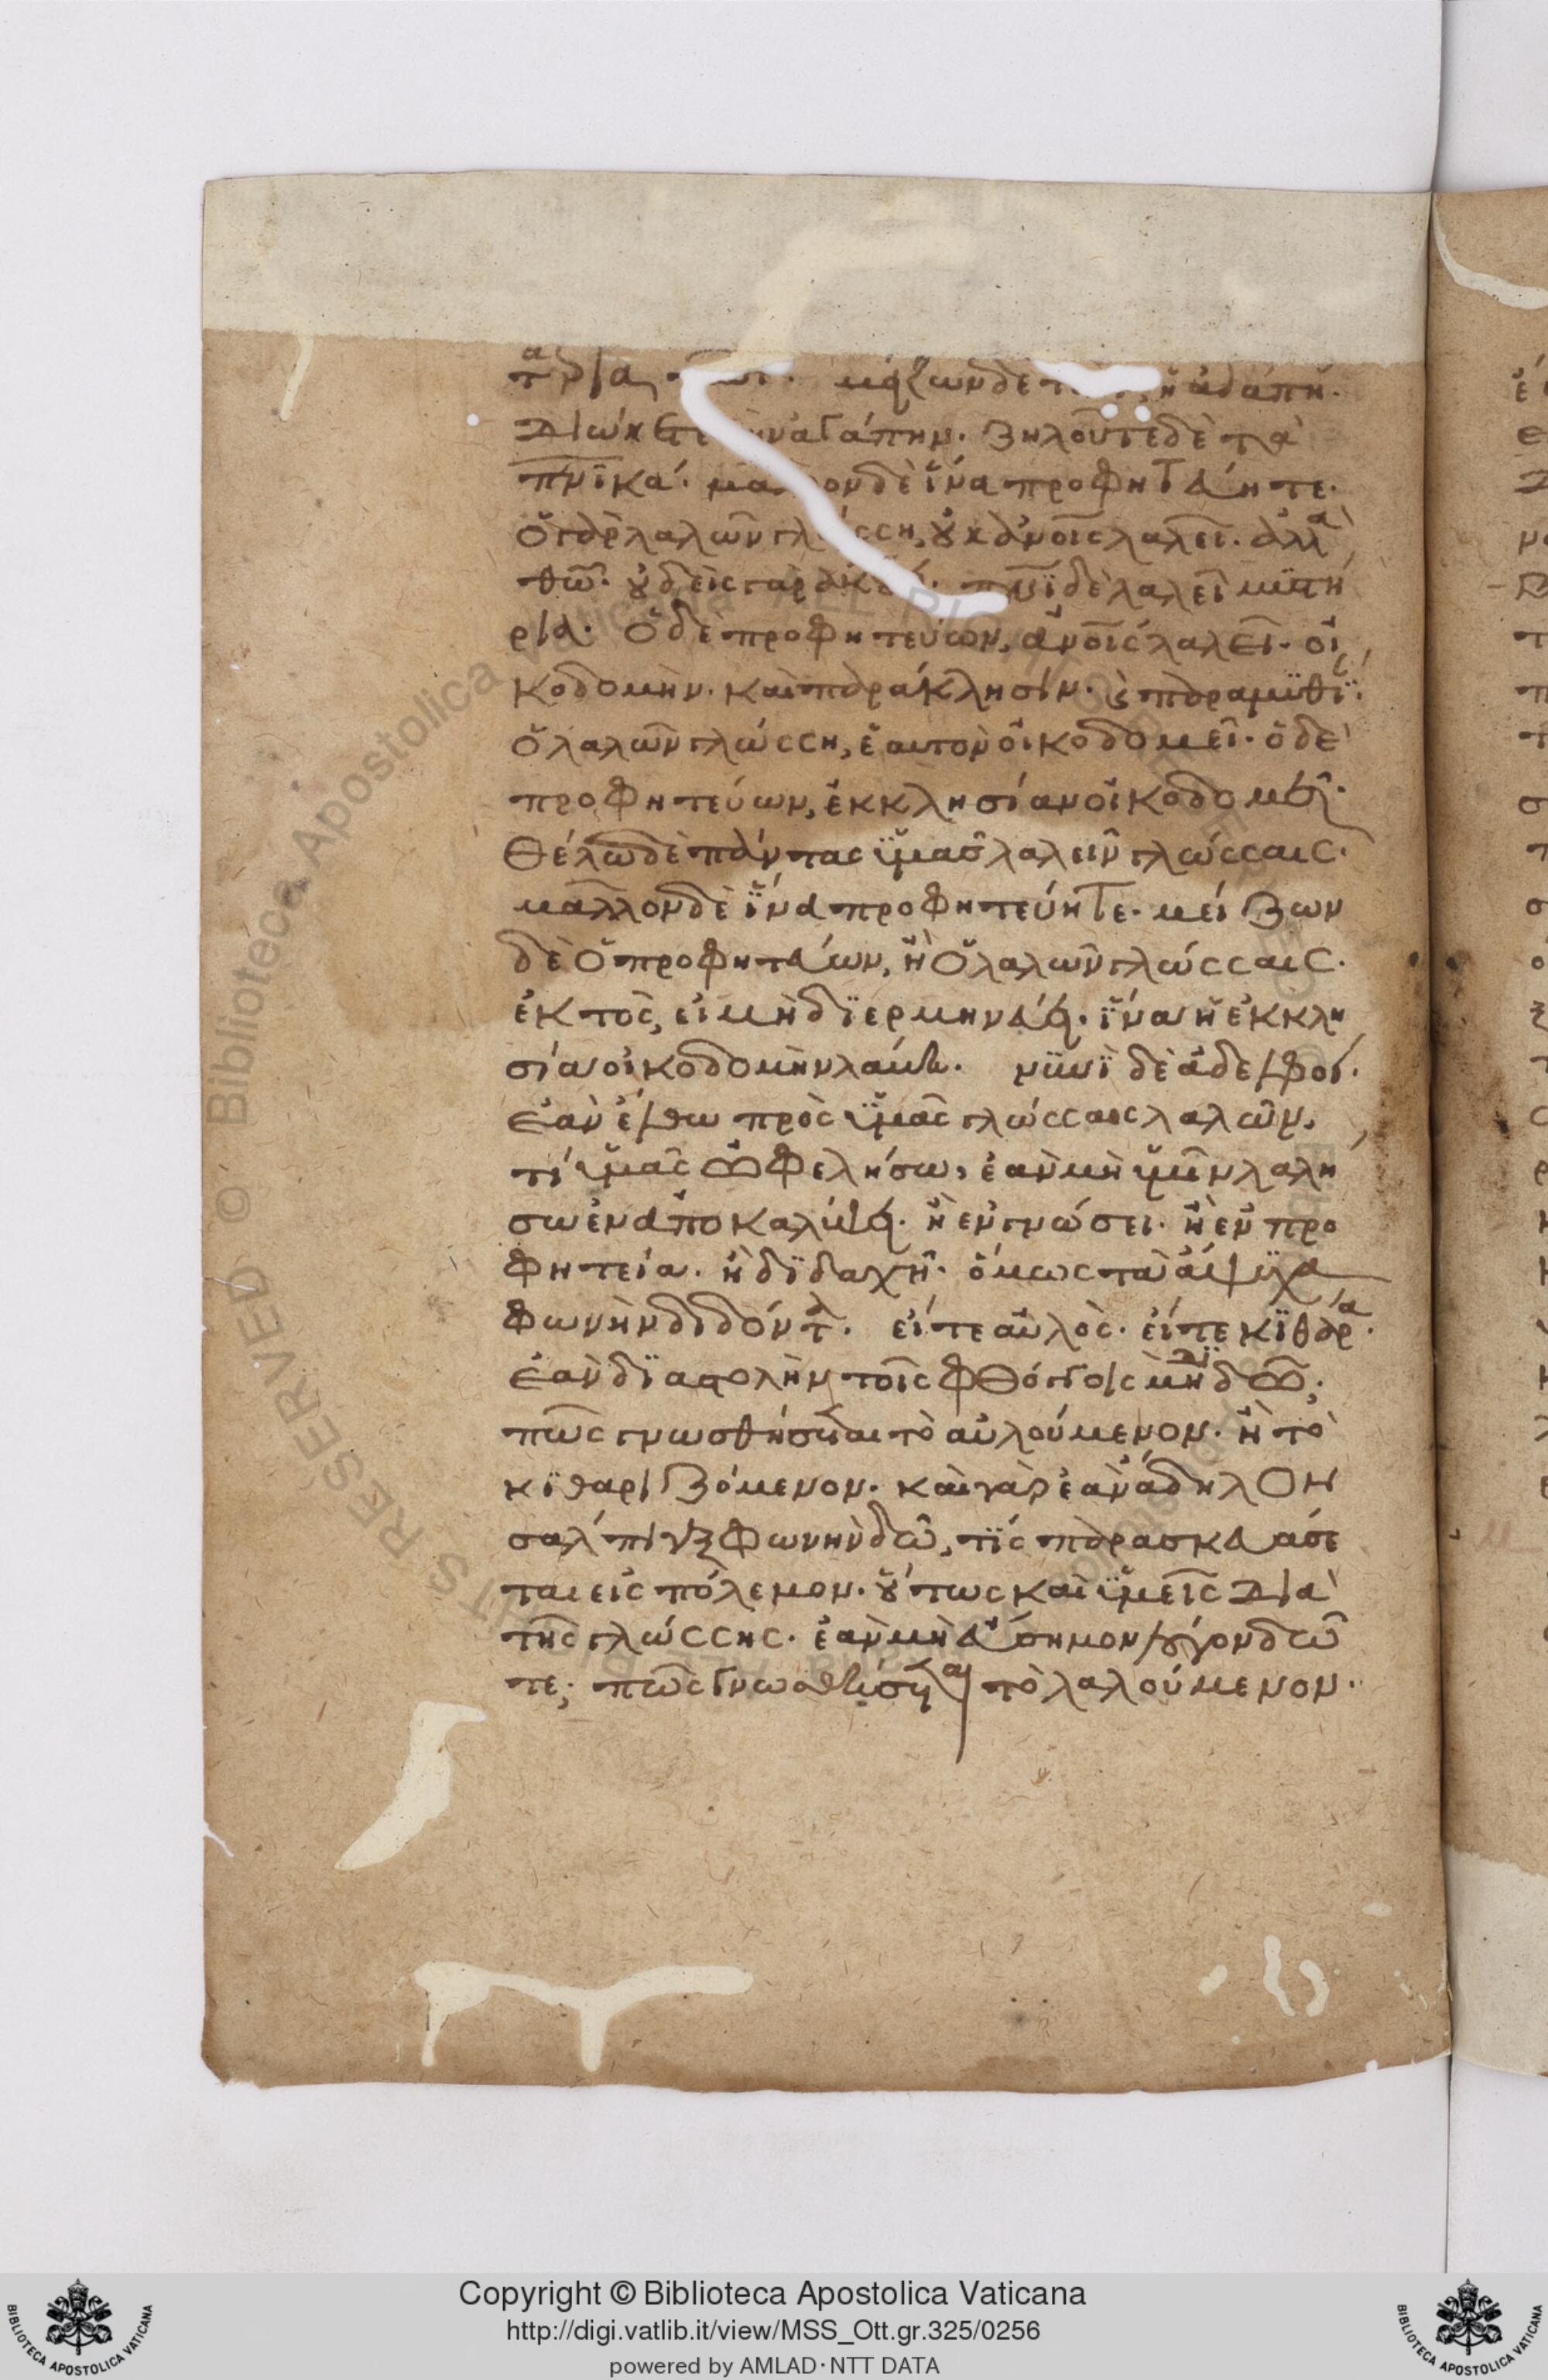 τρία μείζων δὲ ἡ ἀγάπη·
Διώκετε ἀγάπην· ζηλοῦτε δὲ τὰ
πνικά· δὲ ἵνα προφητεύητε·
Ὁ γὰρ λαλῶν οὐκ ἀνοις λαλεῖ· ἀλλὰ
θῶ· οὐδεὶς γὰρ πνι δὲ λαλεῖ μυστή
ρια· Ὁ δὲ προφητεύων, ἀνοις λαλεῖ· οἰ
κοδομὴν· καὶ παράκλησιν· καὶ παραμυθί·
Ὁ λαλῶν γλώσση, ἑαυτὸν οἰκοδομεῖ· ὁ δὲ
προφητεύων, ἐκκλησίαν οἰκοδομεῖ·
Θέλω δὲ πάντας ὑμᾶς λαλεῖν γλώσσαις·
μᾶλλον δὲ ἵνα προφητεύητε· μείζων
δὲ ὁ προφητεύων, ἢ ὁ λαλῶν γλώσσαις·
ἐκτὸς, εἰ μὴ διερμηνεύει· ἵνα ἡ ἐκκλη
σία οἰκοδομὴν λάβη· νυνὶ δὲ ἀδελφοί·
ἐὰν ἔλθω πρὸς ὑμᾶς γλώσσαις λαλῶν,
τί ὑμᾶς ὠφελήσω, ἐὰν μὴ ὑμῖν λαλή
σω ἐν ἀποκαλύψει· ἢ ἐν γνώσει· ἢ ἐν προ
φητεία· ἢ διδαχῆ· ὅμως τὰ ἄψυχα
φωνὴν διδόντα· εἴτε αὐλὸς· εἴτε κιθάρα·
ἐὰν διαστολὴν τοῖς φθόγγοις μὴ δῶ,
πῶς γνωσθήσεται τὸ αὐλούμενον· ἢ τὸ
κιθαριζόμενον· καὶ γὰρ ἐὰν ἄδηλον
σάλπιγξ φωνὴν δῶ, τίς παρασκευάσε
ται εἰς πόλεμον· οὕτως καὶ ὑμεῖς διὰ
τῆς γλώσσης· ἐὰν μὴ εὔσημον λόγον δῶ
τε, πῶς γνωσθήσεται τὸ λαλούμενον·
Copyright © Biblioteca Apostolica Vaticana
http://digi.vatlib.it/view/MSS_Ott.gr.325/0256
powered by AMLAD·NTT DATA